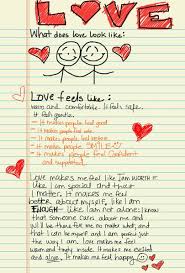 LOVE
What does love look like:
Love feels like:
warm and comfortable. it feels safe.
it feels gentle.
- It makes people feel good
- It makes people feel safe.
- It makes people feel
- It makes people SMILE
- it makes people feel confident
and supported.
Love makes me feel like I am WORTH IT
like I am special and their
I matter. It makes me feel
better about myself, like I am
ENOUGH - like I am not alone; I know
that someone cares about me and
will be there for me no matter what, and
that I can be myself and I am perfect just
the way I am. love makes me feel
warm and toasty inside. It makes me excited
and alive. It makes me feel happy